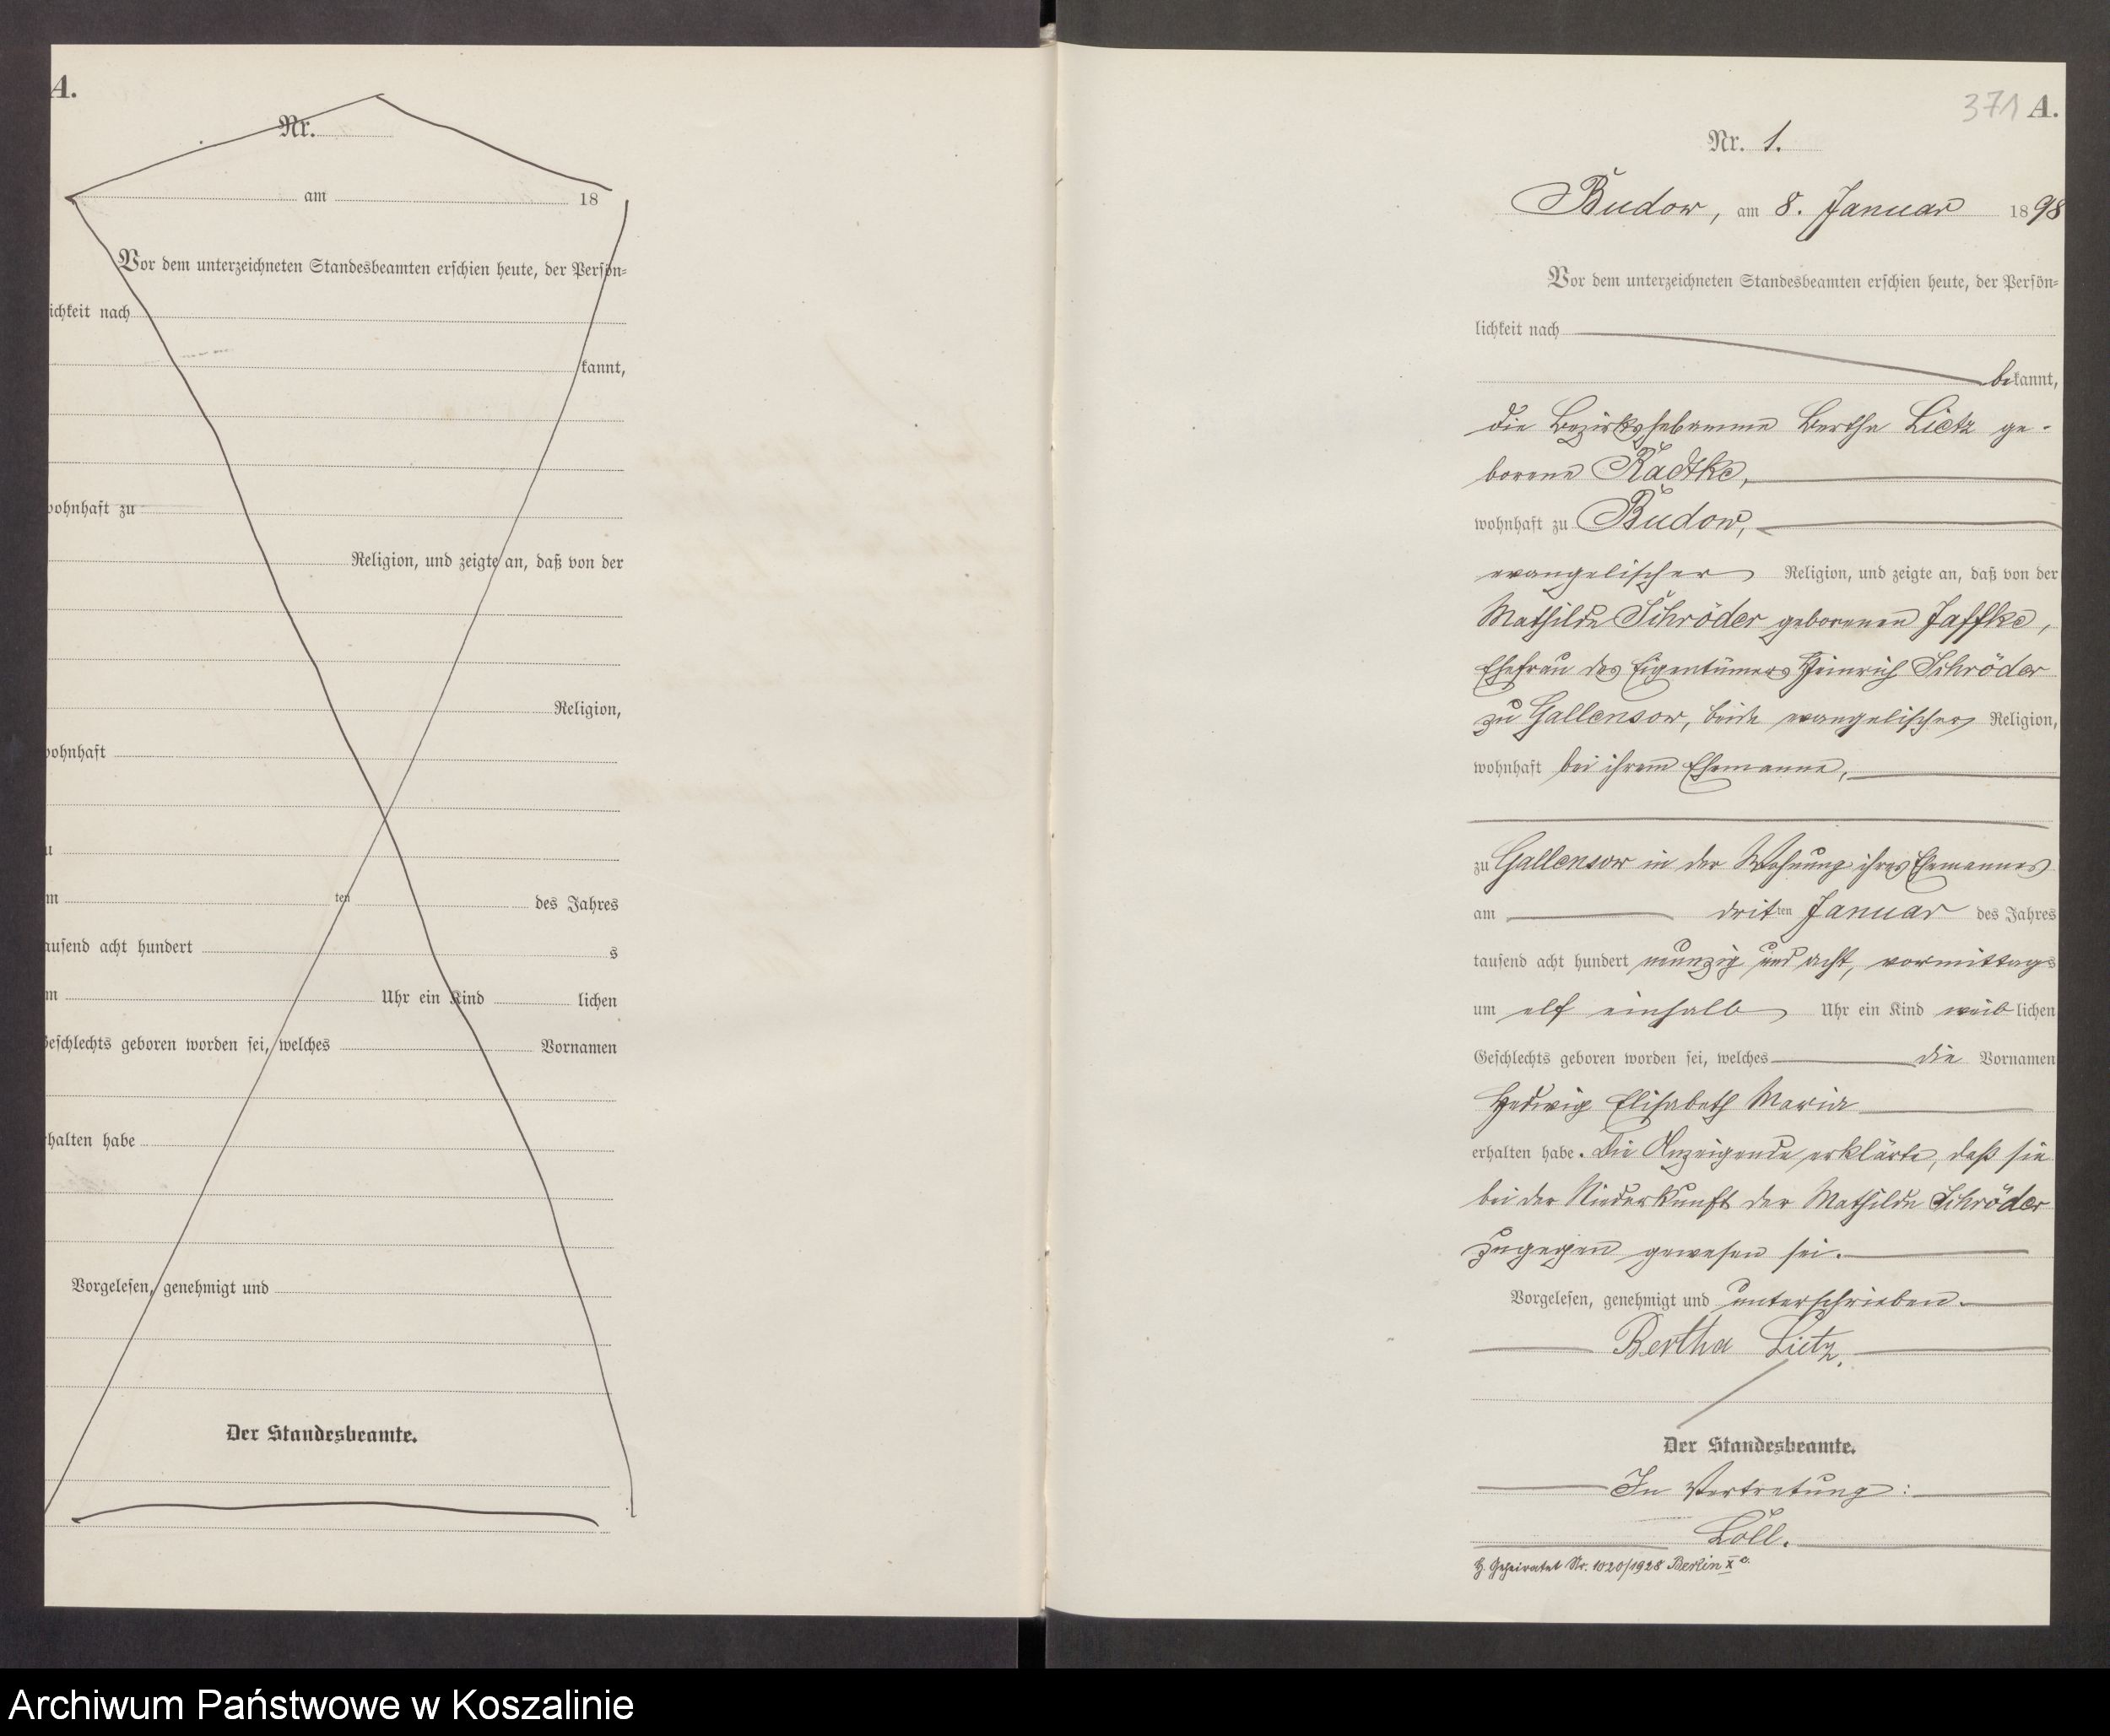 A.
Nr.
am 18
Vor dem unterzeichneten Standesbeamten erschien heute, der Persön=
ichkeit nach
kannt,
wohnhaft zu
Religion, und zeigte an, daß von der
Religion,
wohnhaft
u
m ten des Jahres
ausend acht hundert s
m Uhr ein Kind lichen
Geschlechts geboren worden sei, welches Vornamen
rhalten habe
Vorgelesen, genehmigt und
Der Standesbeamte.
371 A.
Nr. 1.
Budow, am 8. Januar 1898
Vor dem unterzeichneten Standesbeamten erschien heute, der Persön=
lichkeit nach
bekannt,
die Bezirkshebamme Bertha Lietz ge-
borene Radtke,
wohnhaft zu Budow,
evangelischer Religion, und zeigte an, daß von der
Mathilde Schröder geborenen Jaffke,
Ehefrau des Eigentümers Heinrich Schröder
zu Gallensow, beide evangelischer Religion,
wohnhaft bei ihrem Ehemanne,
zu Gallensow in der Wohnung ihres Ehemannes
am dritten Januar des Jahres
tausend acht hundert neunzig und acht, vormittags
um elf einhalb Uhr ein Kind weiblichen
Geschlechts geboren worden sei, welches die Vornamen
Hedwig Elisabeth Maria
erhalten habe. Die Anzeigende erklärte, daß sie
bei der Niederkunft der Mathilde Schröder
zugegen gewesen sei.
Vorgelesen, genehmigt und unterschrieben.
Bertha Lietz.
Der Standesbeamte.
In Vertretung:
Löll.
Geheiratet Nr. 1020/1928 Berlin X a.
Archiwum Państwowe w Koszalinie